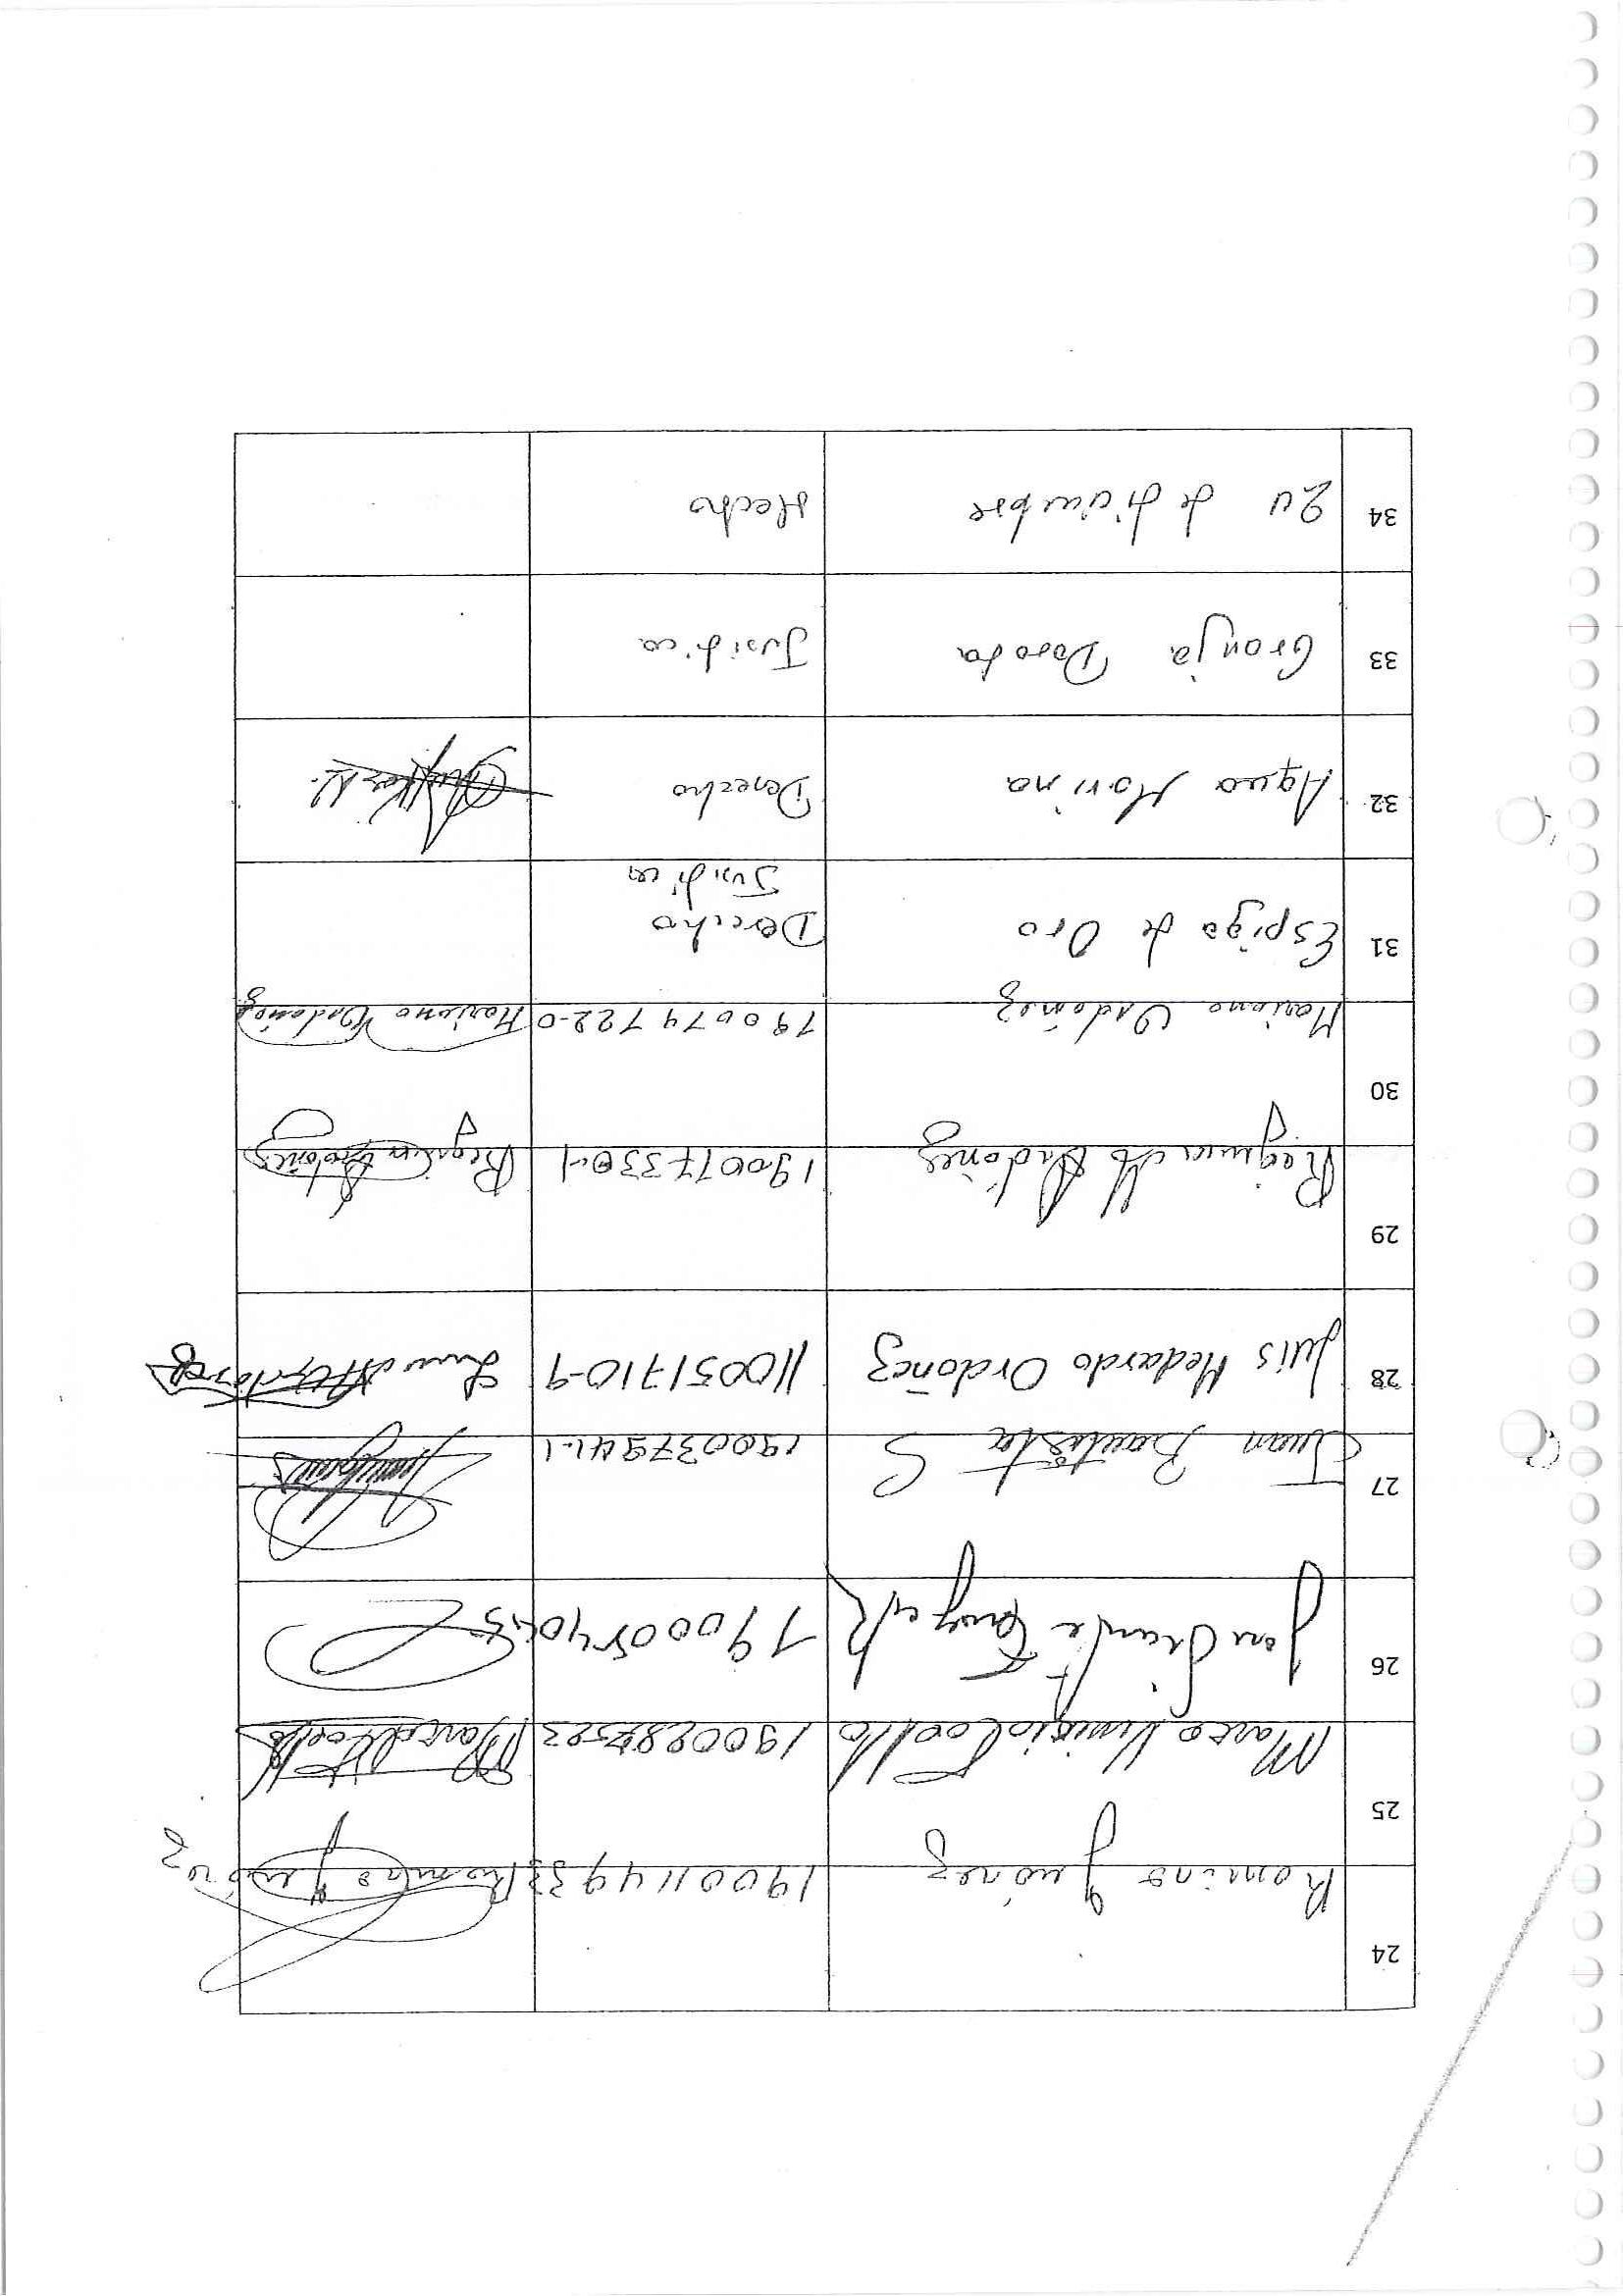 24 Romino Guónez 190011493 Romulo Guónez
25 Marco Vinicio Coello 190028 523 Marco V Coello
26 José 19000
27 Juan Bautista S 190037941-1
28 Luis Medardo Ordoñez 110051710-9 Luis M Ordoñez
29 Regina M Ordoñez 190017330-1 Regina Ordoñez
30 Mariano Ordoñez 190074722-0 Mariano Ordoñez
31 Espiga de Oro Derecho
Juridica
32 Agua Marina Derecho
33 Granja Dorada Juridica
34 20 de diciembre Hecho